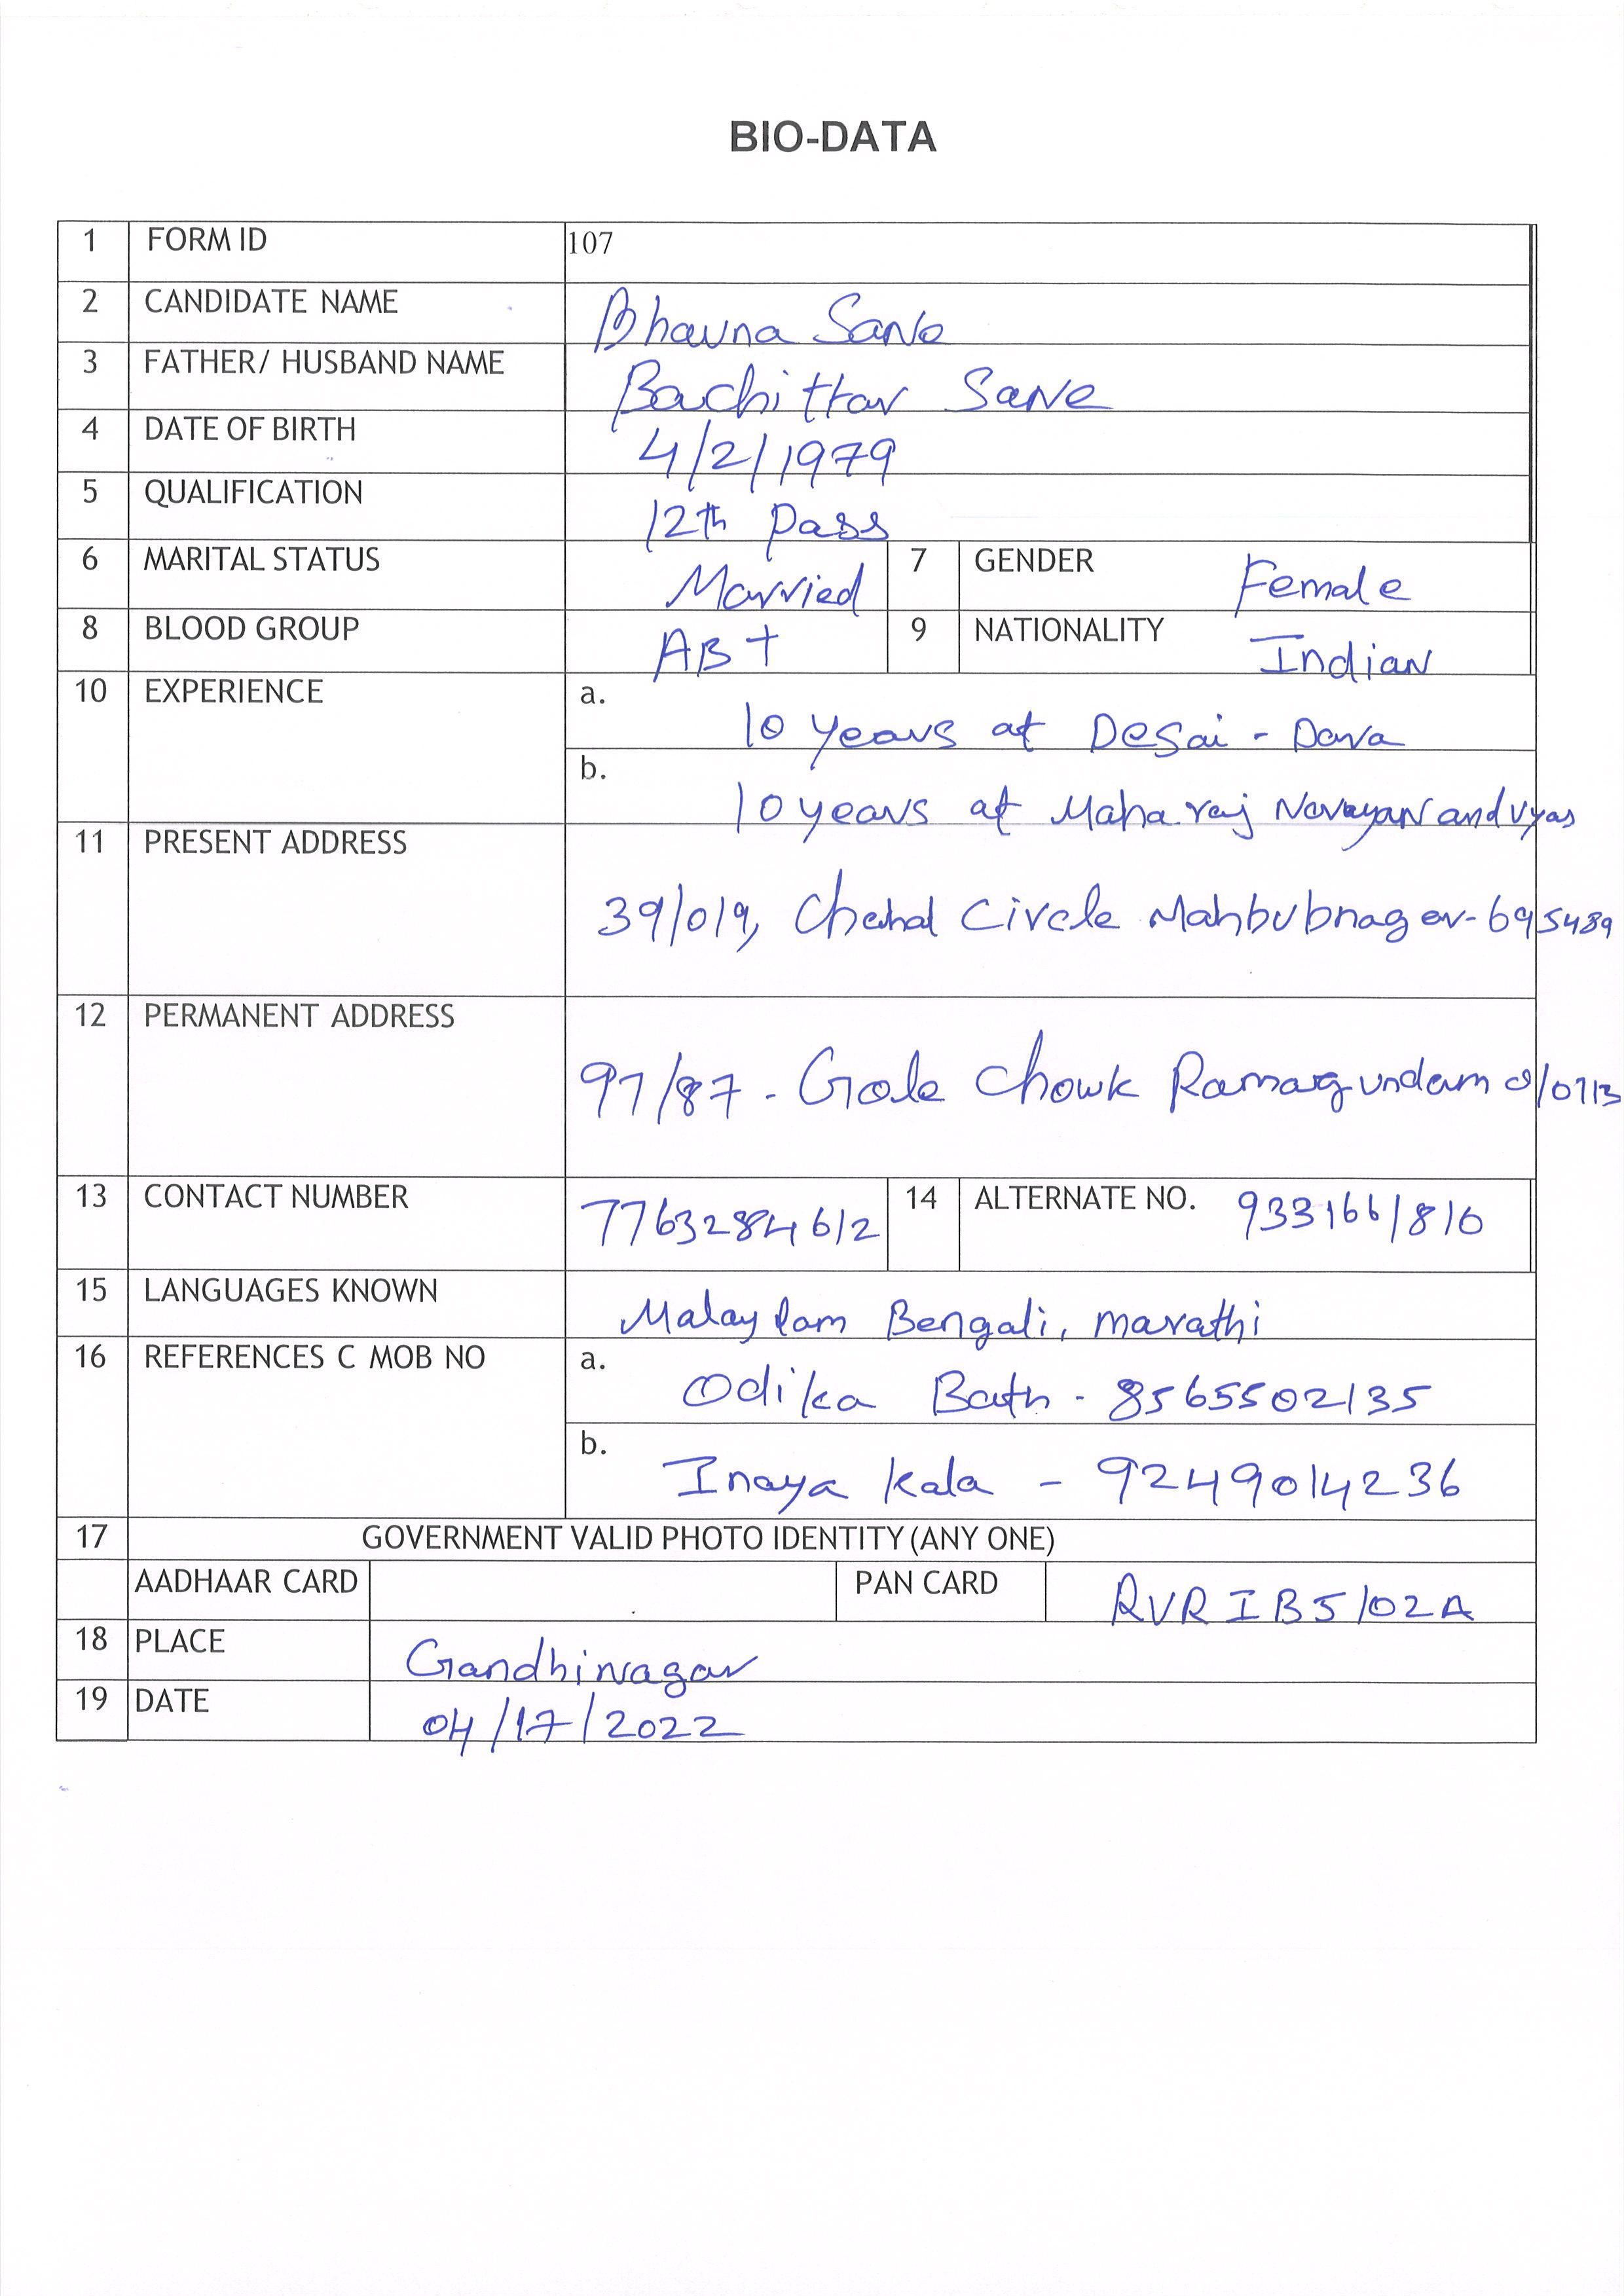 BIO-DATA
1 FORM ID 107
2 CANDIDATE NAME Bhavna Sane
3 FATHER/ HUSBAND NAME Bachittar Sane
4 DATE OF BIRTH 4/2/1979
5 QUALIFICATION 12th Pass
6 MARITAL STATUS Married 7 GENDER Female
8 BLOOD GROUP AB+ 9 NATIONALITY Indian
10 EXPERIENCE a. 10 years at Desai - Dara
b. 10 years at Maharaj Narayan and Vyas
11 PRESENT ADDRESS
39/019, Chahal Circle Mahbubnagar - 695489
12 PERMANENT ADDRESS
97/87 - Gole Chowk Ramagundam
13 CONTACT NUMBER 7763284612 14 ALTERNATE NO. 9331661810
15 LANGUAGES KNOWN Malaylam Bengali, marathi
16 REFERENCES C MOB NO a. Odika Bath - 8565502135
b. Inaya Kala - 9249014236
17 GOVERNMENT VALID PHOTO IDENTITY (ANY ONE)
AADHAAR CARD PAN CARD RVRIB5102A
18 PLACE Gandhinagar
19 DATE 04/17/2022